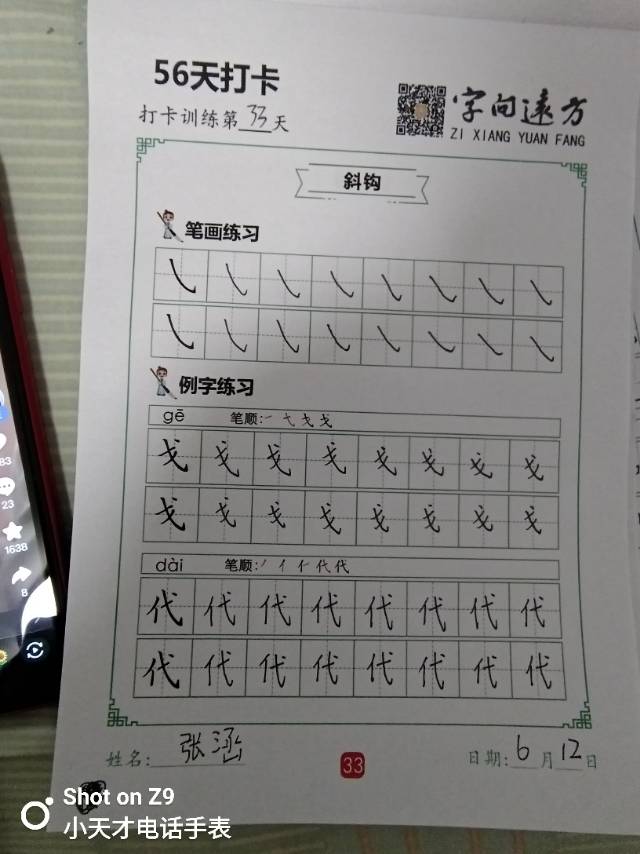 56天打卡
打卡训练第33天
字向遠方
ZI XIANG YUAN FANG
斜钩
笔画练习
例字练习
gē 笔顺:一 弋 戈 戈
戈 戈 戈 戈 戈 戈 戈 戈
戈 戈 戈 戈 戈 戈 戈 戈
dài 笔顺:丿 亻 仁 代 代
代 代 代 代 代 代 代 代
代 代 代 代 代 代 代 代
姓名:张涵
33
日期:6月12日
83
23
1638
8
Shot on Z9
小天才电话手表